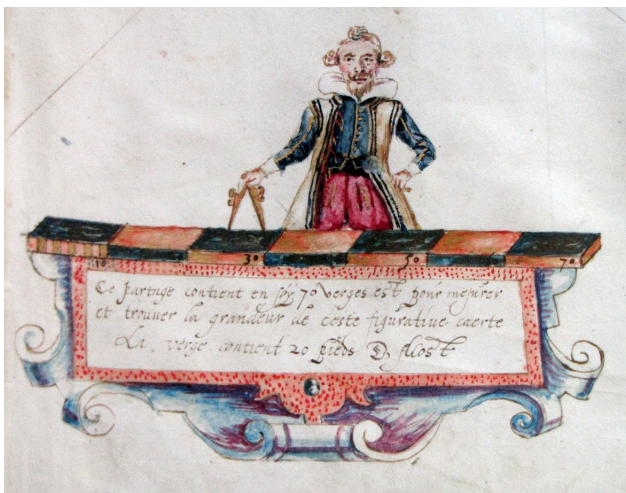 10 30 50 70
Ce partage contient en soy 70 verges est pour mesurer
et trouver la grandeur de ceste figurative caerte
La verge contient 20 pieds D.